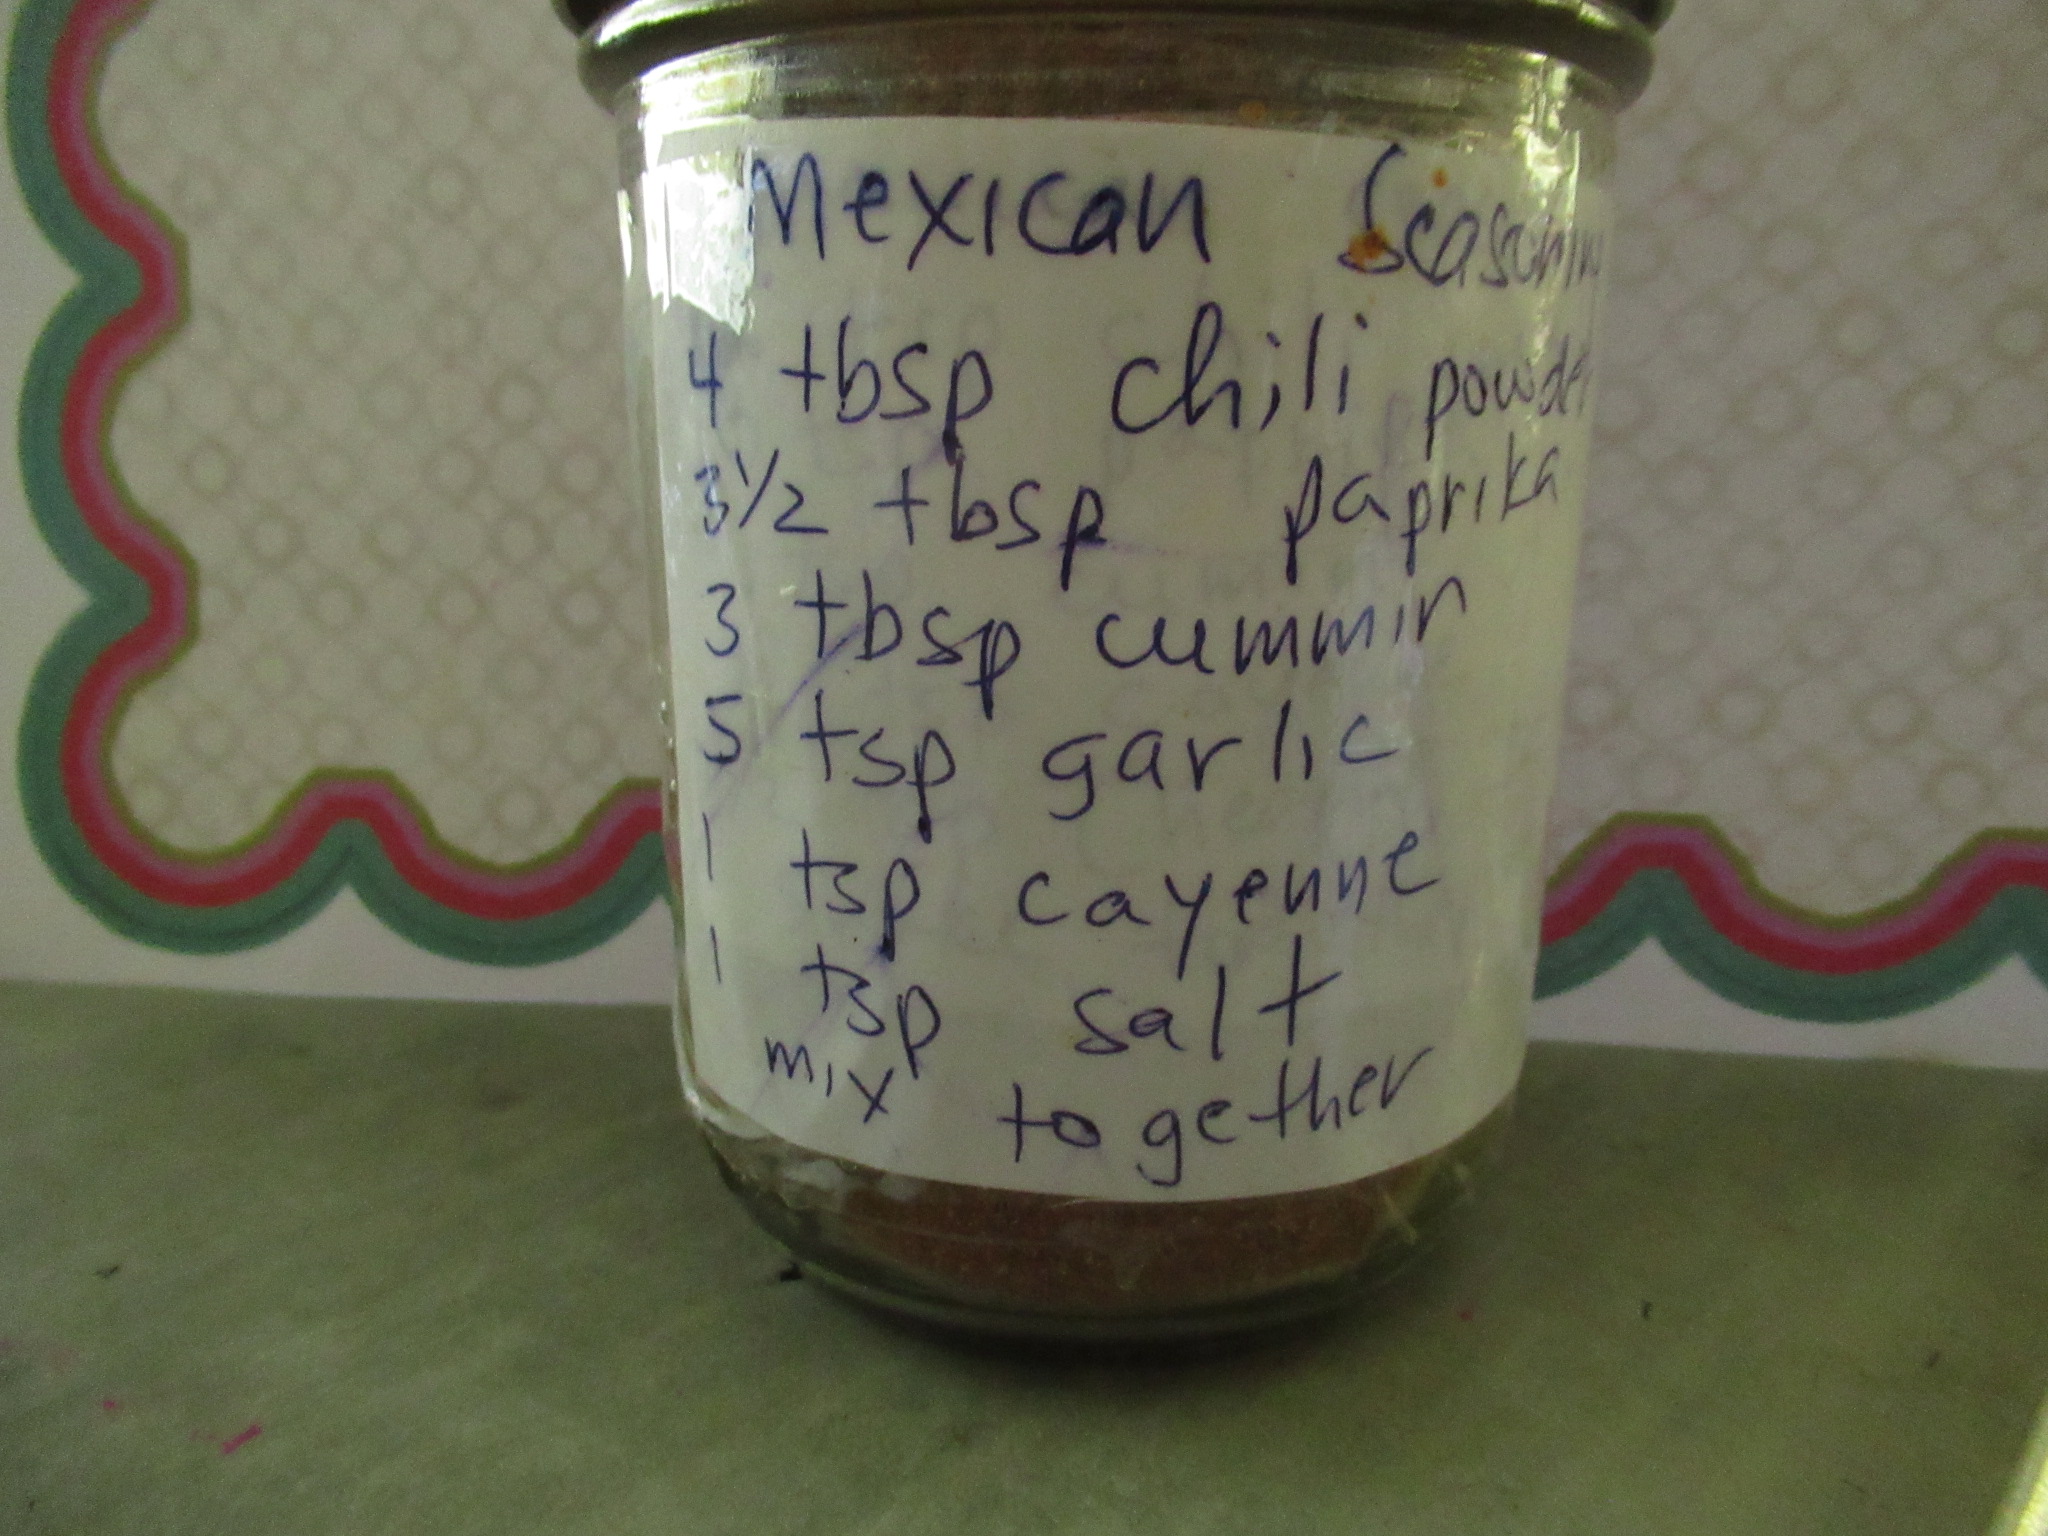 Mexican Seasonin
4 tbsp chili powder
3 1/2 tbsp paprika
3 tbsp cummin
5 tsp garlic
1 tsp cayenne
1 tsp salt
mix together